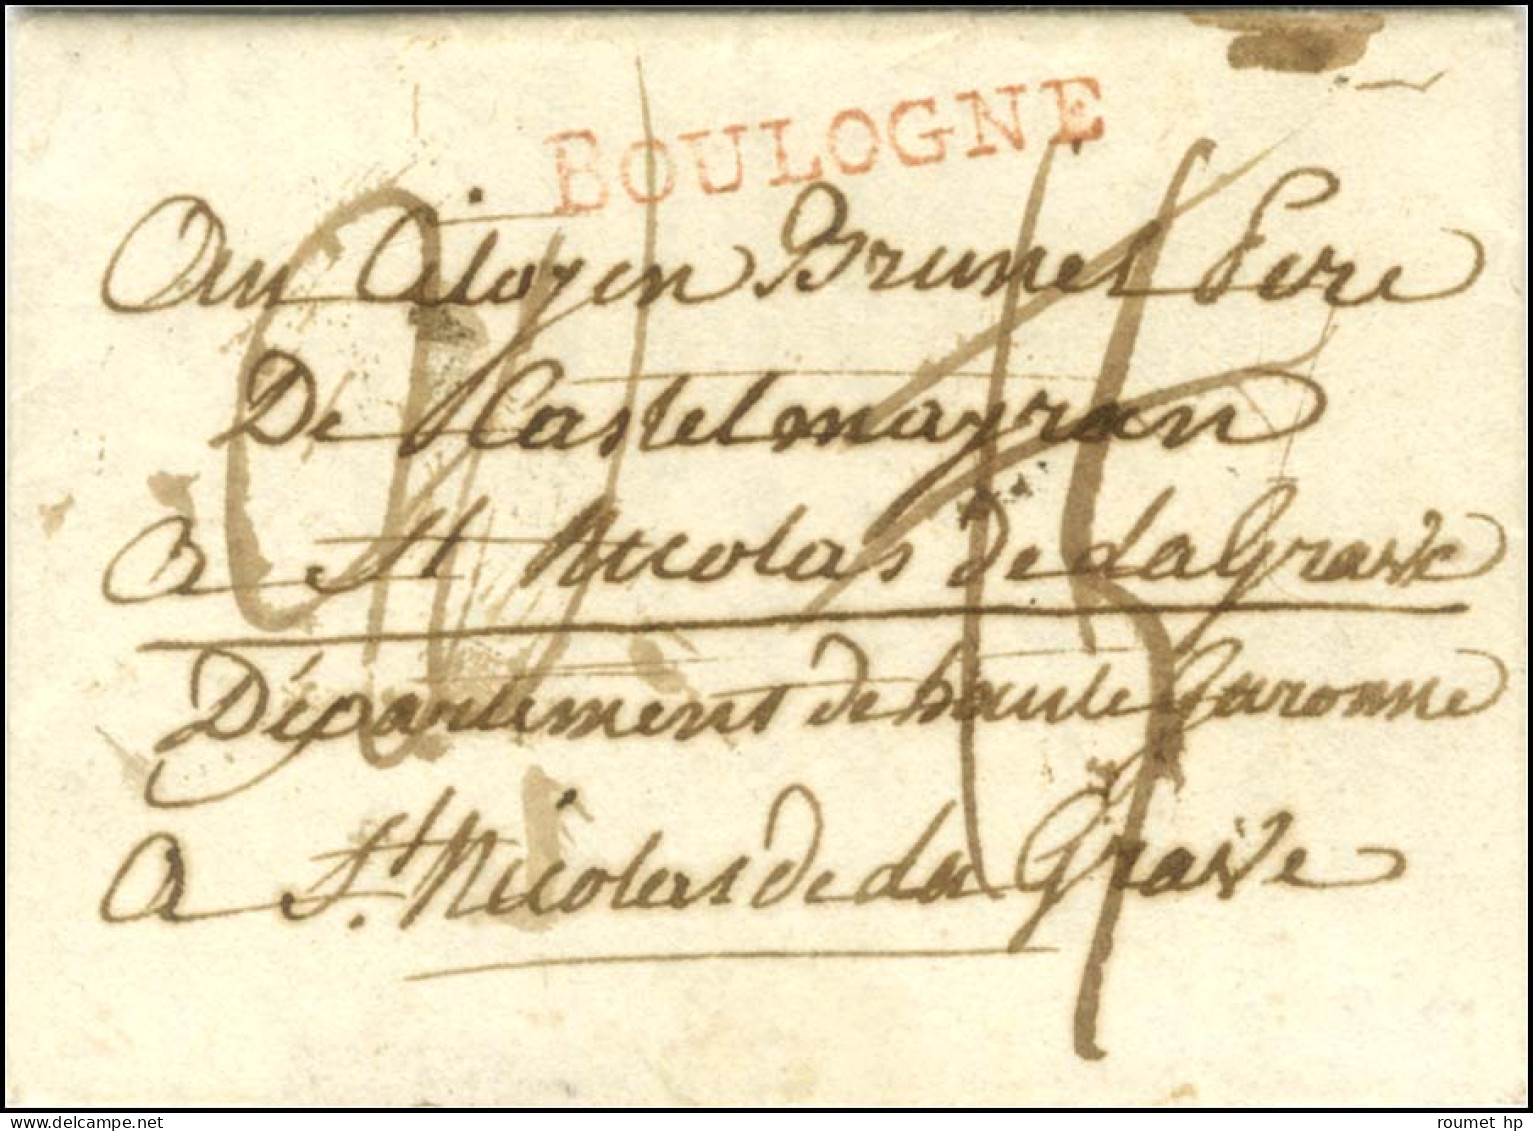 BOULOGNE
Au Citoyen Brunet Pere
De Castelmayran
a St Nicolas de La Grave
Département de haute Garonne
a St. Nicolas de La Grave
roumet hp